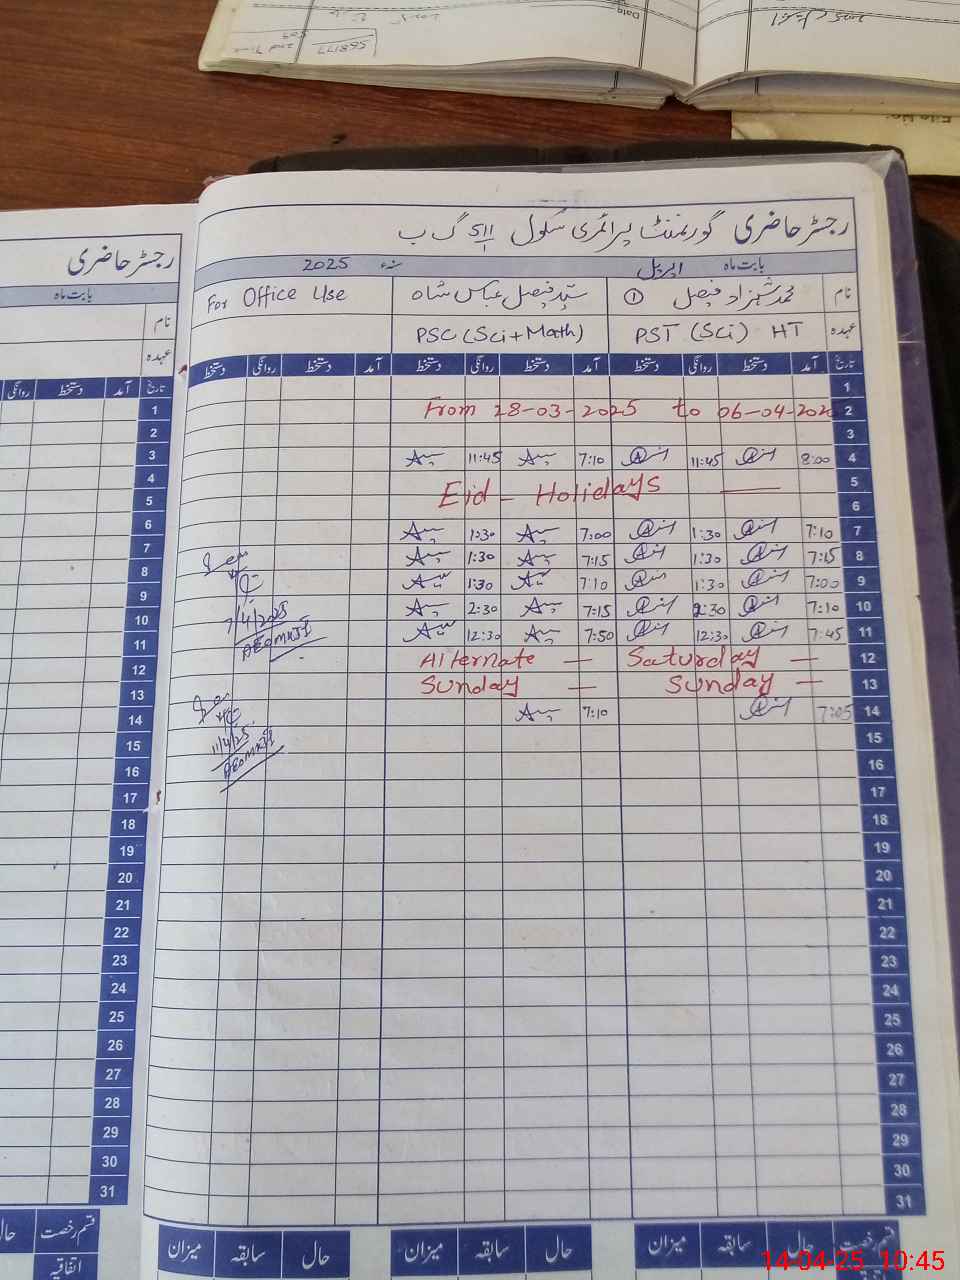 رجسٹر حاضری گورنمنٹ پرائمری سکول 511 گ ب
بابت ماہ اپریل سنہ 2025
نام محمد شہزاد فیصل ① سید فیصل عباس شاہ For Office Use
عہدہ PST (Sci) HT PSC (Sci+Math)
تاریخ آمد دستخط روانگی دستخط آمد دستخط روانگی دستخط آمد دستخط روانگی دستخط
1
From 28-03-2025 to 06-04-202 2
3
11:45 7:10 11:45 8:00 4
Eid - Holidays — 5
6
1:30 7:00 1:30 7:10 7
1:30 7:15 1:30 7:15 8
1:30 7:10 1:30 7:00 9
2:30 7:15 2:30 7:10 10
12:30 7:50 12:30 7:45 11
Alternate — Saturday — 12
Sunday — Sunday — 13
7:10 7:05 14
15
16
17
18
19
20
21
22
23
24
25
26
27
28
29
30
31
7/4/2025
11/4/25
قسم رخصت حال سابقہ میزان حال سابقہ میزان حال سابقہ میزان
رجسٹر حاضری
بابت ماہ
نام
عہدہ
تاریخ آمد دستخط روانگی
1
2
3
4
5
6
7
8
9
10
11
12
13
14
15
16
17
18
19
20
21
22
23
24
25
26
27
28
29
30
31
قسم رخصت حال
اتفاقیہ
568177
2nd Time
Date
File No:
14-04-25 10:45